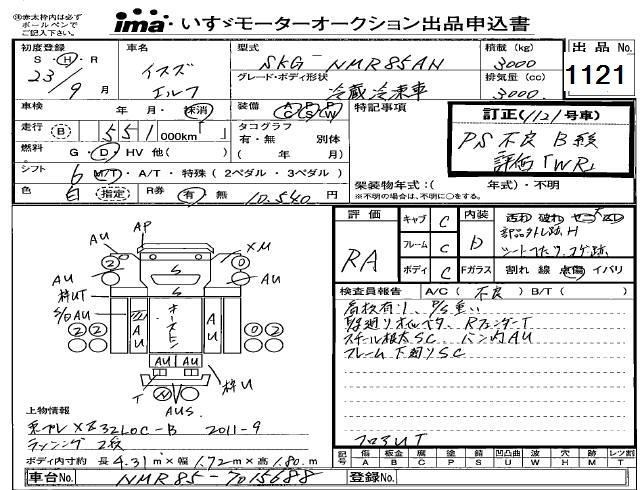 ※赤太枠内は必ず
ボールペンで
ご記入下さい。
ima いすゞモーターオークション出品申込書
初度登録
S・H・R
23/9月
車名
イスズ
エルフ
型式
SKG-NMR85AN
グレード・ボディ形状
冷蔵冷凍車
積載 (kg)
3000
排気量 (cc)
3000
出品No.
1121
車検 年・月・抹消
装備 AC PS PW
特記事項
訂正(1121号車)
PS不良 B級
評価「WR」
走行 B 551 000km
タコグラフ
有・無 別体
( 年 月)
燃料 G・D・HV 他( )
シフト 6 M/T・A/T・特殊 (2ペダル・3ペダル)
色 白 (指定) R券 有 無 10,540円
架装物年式:( 年式)・不明
※不明の場合は、不明に○をする。
評価
RA
キャブ C
フレーム C
ボディ C
内装 D
汚れ 破れ
部品外し跡 H
Fガラス 割れ 線 点傷 イバリ
検査員報告 A/C( 不良 ) B/T( )
高校有り、P/S重い
RフェンダーT
スチール根太SC バン内AU
フレーム下廻りSC
フロアUT
AP
AU
XU
AU
AU
枠UT
S/D AU
AU
AU
AU
AU
枠U
T
AUS
S
S
2
0
2
2
0
2
上物情報
東プレ XV32LOC-B 2011-9
ラッシング 2段
ボディ内寸約 長 4.31m×幅 1.72m×高 1.80m
記号
傷 A
板金 B
腐 C
塗 P
錆 S
凹凸曲 U
波 W
穴 H
跡 M
切 T
レンズ R
車台No. NMR85-7015688
登録No.